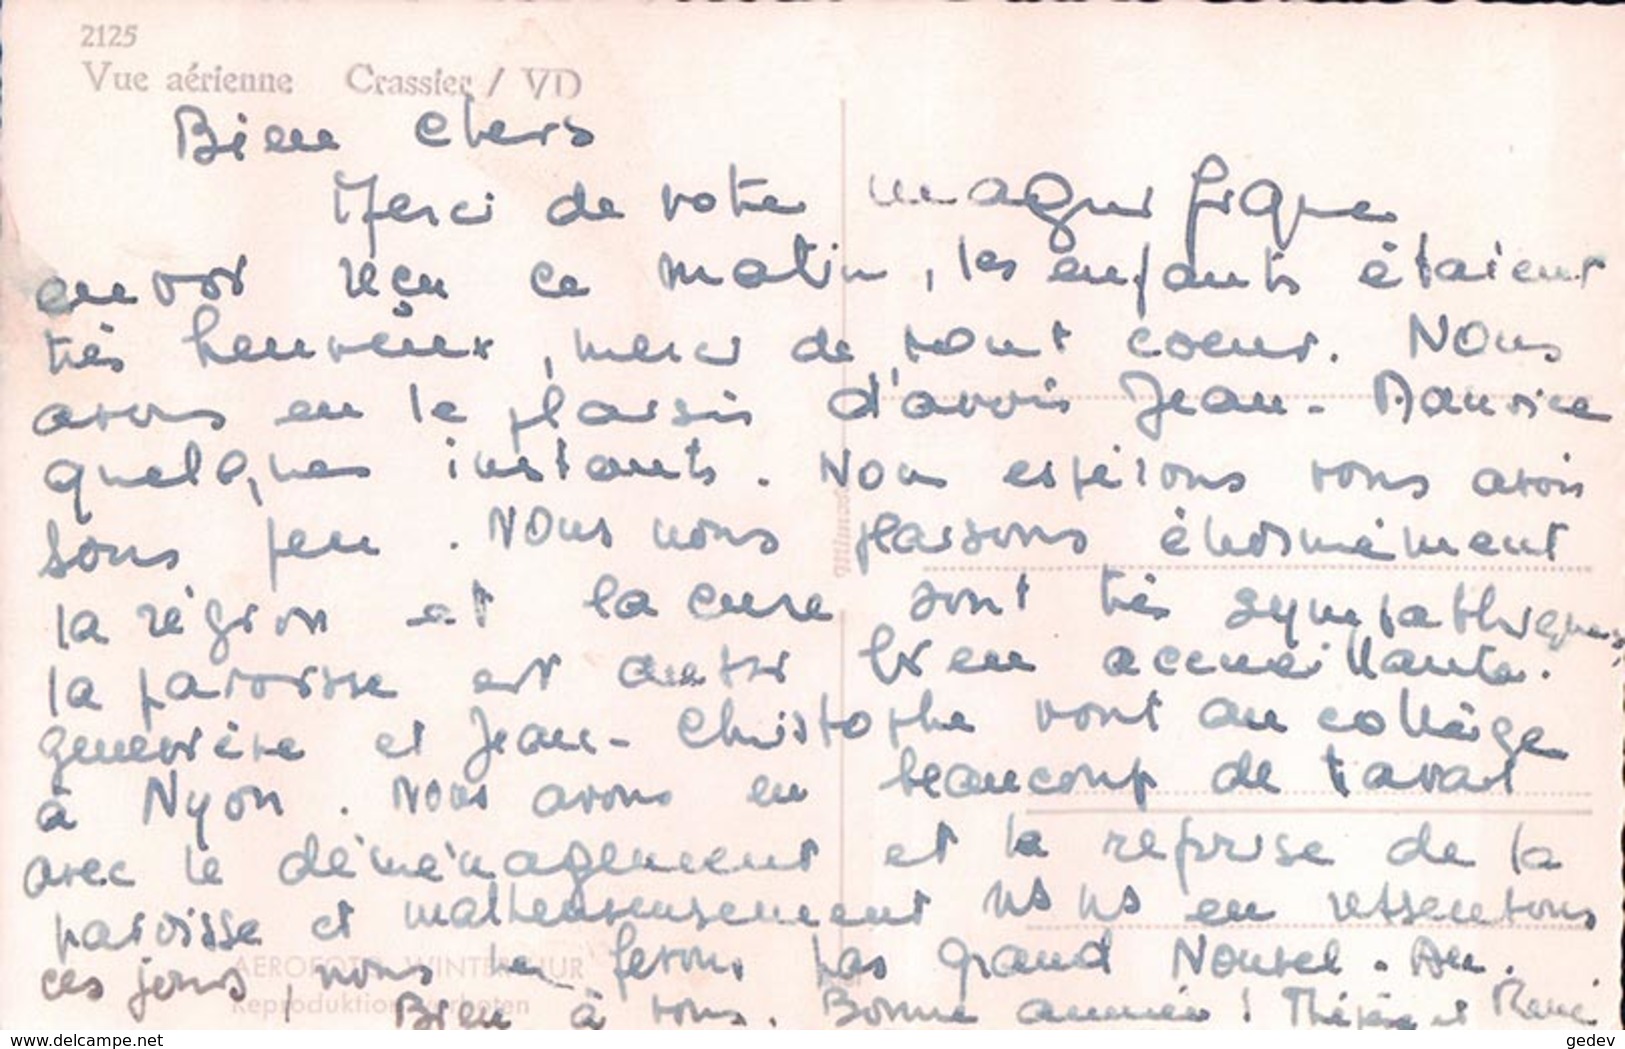 2125
Vue aérienne Crassier / VD
Bien chers
Merci de votre magnifique
envoi reçu ce matin, les enfants étaient
très heureux, merci de tout coeur. Nous
avons eu le plaisir d'avoir Jean-Maurice
quelques instants. Nous espérons vous avoir
sous peu. Nous nous plaisons énormément
la région et la cure sont très sympathiques,
la paroisse est aussi bien accueillante.
Geneviève et Jean-Christophe vont au collège
à Nyon. Nous avons eu beaucoup de travail
avec le déménagement et la reprise de la
paroisse et malheureusement ns ns en ressentons
ces jours, nous ne ferons pas grand Nouvel-An.
Bien à vous. Bonne année! Thérèse et René
Mimosa
AEROFOTO WINTERTHUR
Reproduktion verboten
www.delcampe.net
gedev